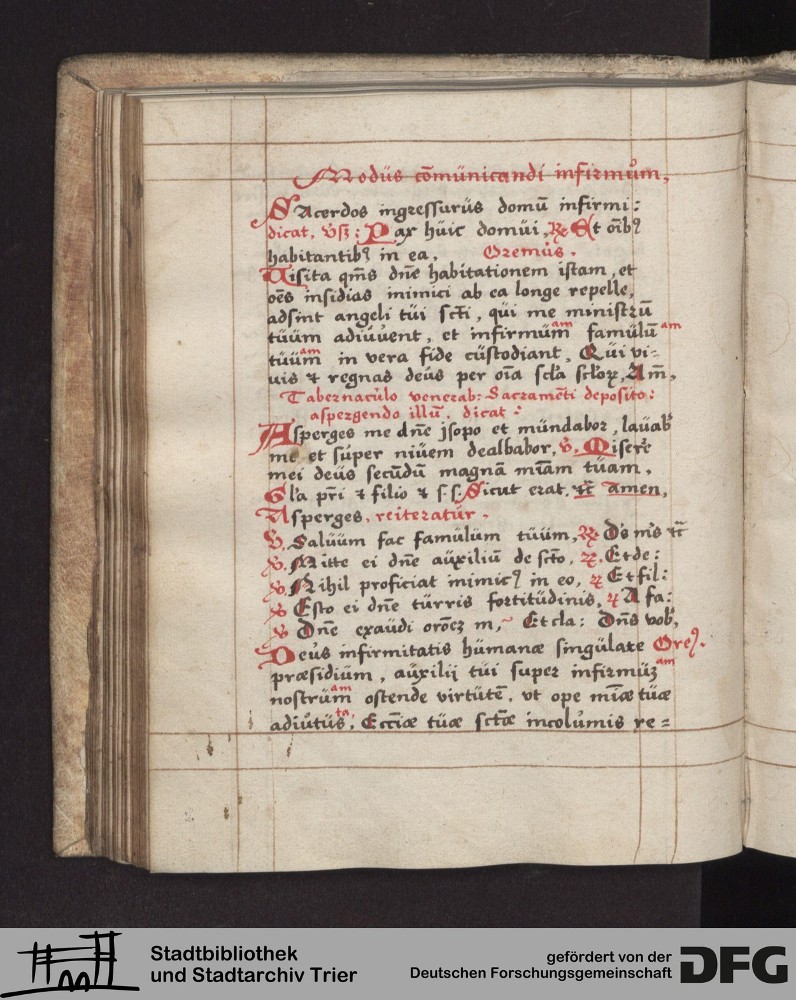 Modus cōmunicandi infirmum.
SAcerdos ingressurus domū infirmi:
dicat. Vsz: Pax huic domui, ℟ Et oīb9
habitantib9 in ea. Oremus.
Visita qm̄s dn̄e habitationem istam, et
oēs insidias inimici ab ea longe repelle,
adsint angeli tui sctī, qui me ministrū
tuum adiuuent, et infirmum am famulū am
tuum am in vera fide custodiant, Qui vi=
uis & regnas deus per oīa scl̄a scl̄oꝝ, Am̄,
Tabernaculo venerab: Sacramēti deposito:
aspergendo illū. dicat:
Asperges me dn̄e jsopo et mundabor, lauab'
me et super niuem dealbabor, ℣. Misere
mei deus secūdū magnā mīam tuam.
Gl'a pr̄i & filio & s. s. Sicut erat. etc̄ amen,
Asperges. reiteratur.
℣. Saluum fac famulum tuum, ℟ Ds m's etc̄
℣. Mitte ei dn̄e auxiliū de sctō, ℟. Et de:
℣. Nihil proficiat inimic9 in eo, ℟ Et fil:
℣ Esto ei dn̄e turris fortitudinis, ℟ A fa:
℣ Dn̄e exaudi orōez m, Et cla: Dn̄s vob',
Deus infirmitatis humanæ singulare Ore9.
præsidium, auxilij tui super infirmuz am
nostrum am ostende virtutē, vt ope mīæ tuæ
adiutus ta, Eccīæ tuæ sctæ incolumis re=
Stadtbibliothek
und Stadtarchiv Trier
gefördert von der
Deutschen Forschungsgemeinschaft
DFG